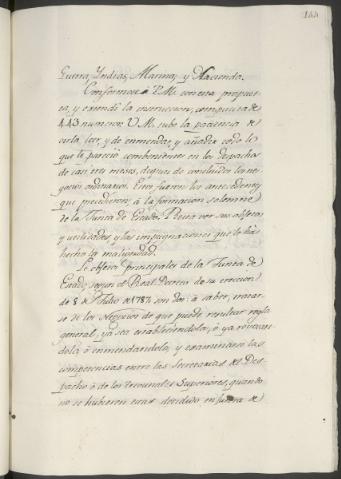 144
Guerra, Indias, Marina, y Hacienda.
Conformose à V.M. con esta propues-
ta, y extendí la instruccion, compuesta de
443 numeros. V.M. tubo la paciencia de
oirla, leer, y de enmendar, y añadir todo lo
que le pareció combeniente en los despachos
de casi tres meses, despues de concluidos los ne-
gocios ordinarios. Estos fueron los antecedentes,
que precedieron à la formacion solemne
de la Junta de Estado. Resta ver sus obgetos
y utilidades, y las impugnaciones que le ha
hecho la malignidad.
Los obgetos principales de la Junta de
Estado, segun el Real Decreto de su ereccion
de 8 de Julio de 1787 son dos: à saber, tratar-
se de los negocios de que puede resultar regla
general, ya sea estableciendola, ò ya revocan-
dola, ò enmendandola; y examinarse las
competencias entre las Secretarías de Des-
pacho ò de los tribunales Superiores, quando
no se hubieren estas decidido en Junta de